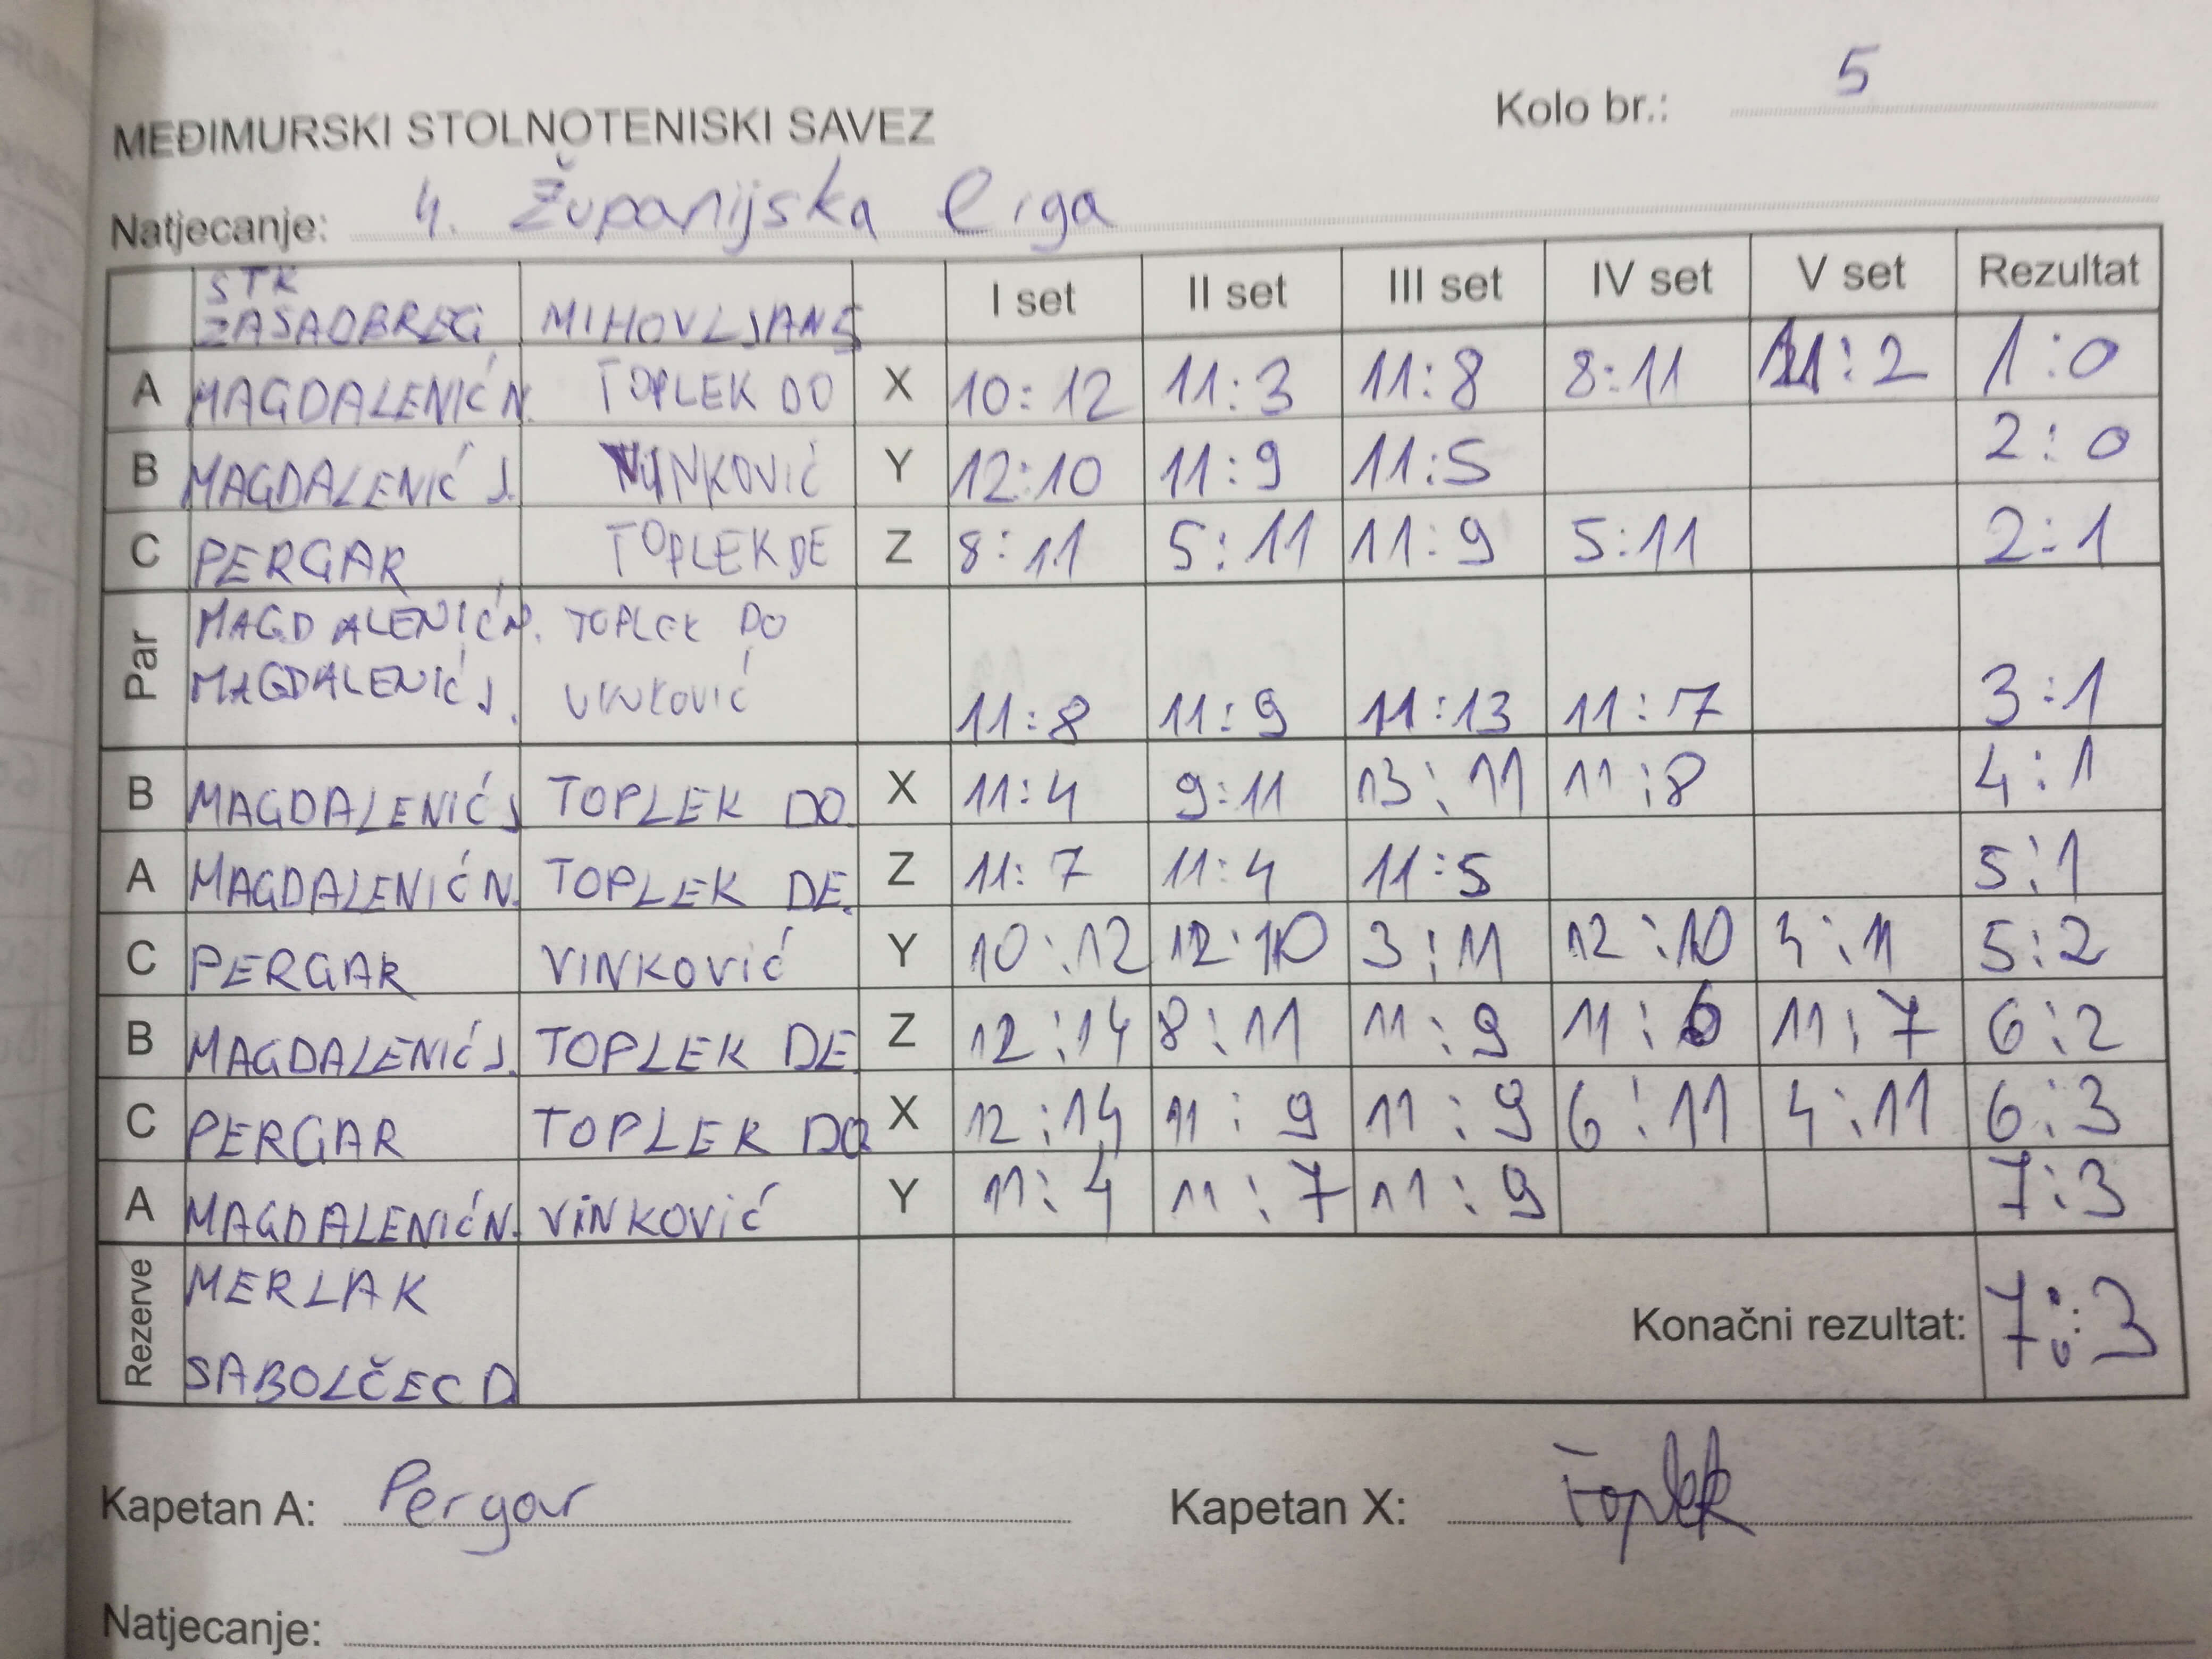 Kolo br.: 5
MEĐIMURSKI STOLNOTENISKI SAVEZ
Natjecanje: 4. Županijska liga
STK ZASADBREG MIHOVLJANS I set II set III set IV set V set Rezultat
A MAGDALENIĆ N. TOPLEK DO X 10:12 11:3 11:8 8:11 11:2 1:0
B MAGDALENIĆ J. VINKOVIĆ Y 12:10 11:9 11:5 2:0
C PERGAR TOPLEK DE Z 8:11 5:11 11:9 5:11 2:1
Par MAGDALENIĆ N. TOPLEK DO
MAGDALENIĆ J. VINKOVIĆ 11:8 11:9 11:13 11:7 3:1
B MAGDALENIĆ J TOPLEK DO. X 11:4 9:11 13:11 11:8 4:1
A MAGDALENIĆ N. TOPLEK DE. Z 11:7 11:4 11:5 5:1
C PERGAR VINKOVIĆ Y 10:12 12:10 3:11 12:10 4:11 5:2
B MAGDALENIĆ J. TOPLEK DE Z 12:14 8:11 11:9 11:6 11:7 6:2
C PERGAR TOPLEK DO X 12:14 11:9 11:9 6:11 4:11 6:3
A MAGDALENIĆ N. VINKOVIĆ Y 11:4 11:7 11:9 7:3
Rezerve MERLAK
SABOLČEC D Konačni rezultat: 7:3
Kapetan A: Pergar Kapetan X: Toplek
Natjecanje: